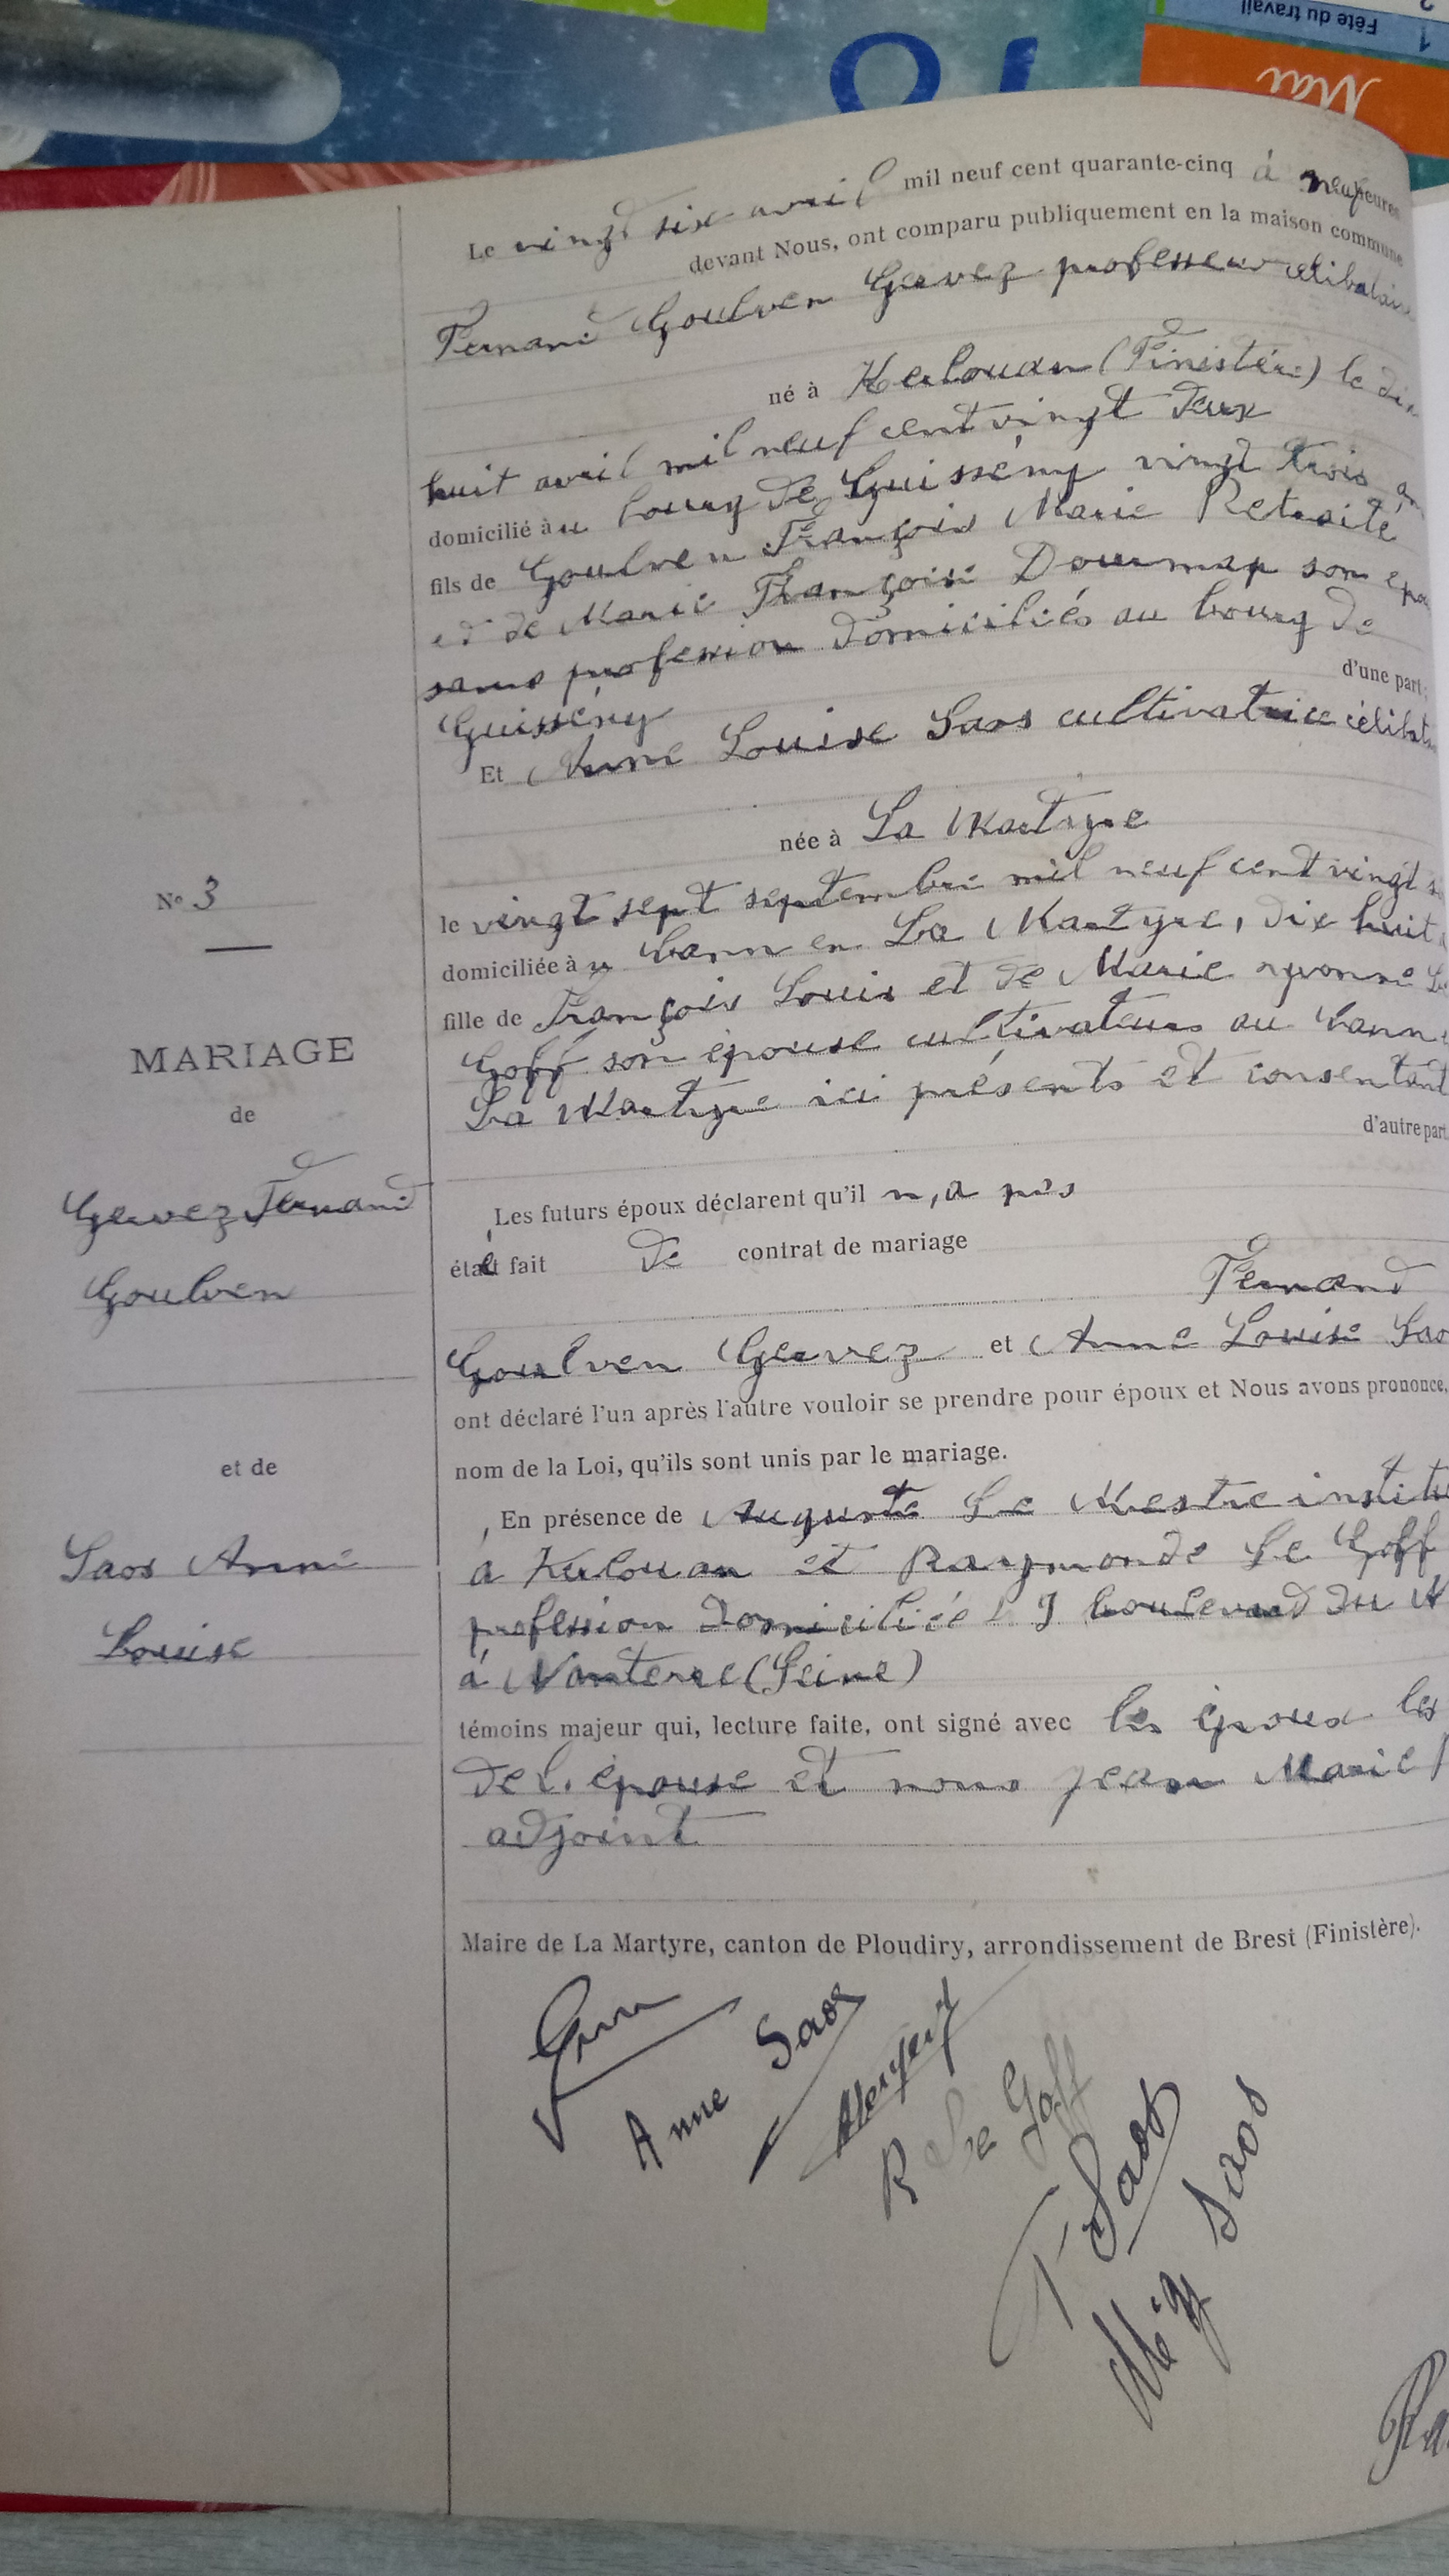 Fête du travail
1
Mai
Le vingt six avril mil neuf cent quarante-cinq à neuf heures
devant Nous, ont comparu publiquement en la maison commune
Fernand Goulven Gervez professeur célibataire
né à Kerlouan (Finistère) le dix
huit avril mil neuf cent vingt deux
domicilié au bourg de Guissény vingt trois an
fils de Goulven François Marie Retraité
et de Marie Françoise Dourmap son epou
sans profession domiciliés au bourg de
Guissény
d'une part;
Et Anne Louise Saos cultivatrice célibat
née à La Martyre
le vingt sept septembre mil neuf cent vingt s
domiciliée à u en La Martyre, dix huit a
fille de François Louis et de Marie yvonne Le
Goff son épouse cultivateurs au
La Martyre ici présents et consentant
d'autre part
Les futurs époux déclarent qu'il n,a pas
été fait de contrat de mariage
Fernand
Goulven Gervez et Anne Louise Sao
ont déclaré l'un après l'autre vouloir se prendre pour époux et Nous avons prononcé,
nom de la Loi, qu'ils sont unis par le mariage.
En présence de Auguste Le Mestre institu
à Kerlouan et Raymonde Le Goff
profession domiciliée 9 boulevard du
à Nanterre (Seine)
témoins majeur qui, lecture faite, ont signé avec les époux les
de l'épouse et nous jean Marie
adjoint
Maire de La Martyre, canton de Ploudiry, arrondissement de Brest (Finistère).
Anne Saos
R Le Goff
F Saos
Saos
N° 3
MARIAGE
de
Gervez Fernand
Goulven
et de
Saos Anne
Louise